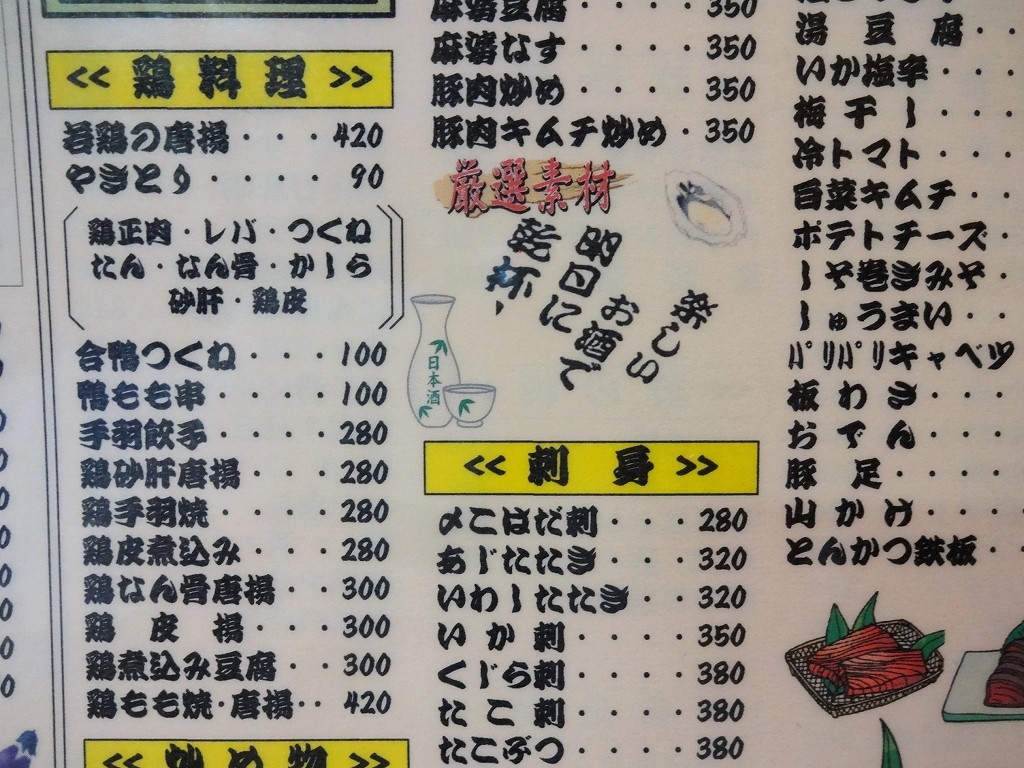 << 鶏料理 >>
若鶏の唐揚・・・420
やきとり・・・・90
鶏正肉・レバ・つくね
たん・なん骨・かしら
砂肝・鶏皮
合鴨つくね・・・・100
鴨もも串・・・・100
手羽餃子・・・・280
鶏砂肝唐揚・・・280
鶏手羽焼・・・・280
鶏皮煮込み・・・280
鶏なん骨唐揚・・300
鶏皮揚・・・・300
鶏煮込み豆腐・・300
鶏もも焼・唐揚・・420
<< 炒め物 >>
麻婆豆腐・・・・350
麻婆なす・・・・350
豚肉炒め・・・・350
豚肉キムチ炒め・350
厳選素材
楽しい
お酒で
明日に
乾杯、
日本酒
<< 刺身 >>
〆こはだ刺・・・280
あじたたき・・・320
いわしたたき・・320
いか刺・・・・350
くじら刺・・・380
たこ刺・・・・380
たこぶつ・・・・380
湯豆腐・・
いか塩辛・・・
梅干し・・・
冷トマト・・・
白菜キムチ・・
ポテトチーズ・
しそ巻きみそ・
しゅうまい・・
パリパリキャベツ
板わさ・・・
おでん・・・
豚足・・・・
山かけ・・・
とんかつ鉄板・・